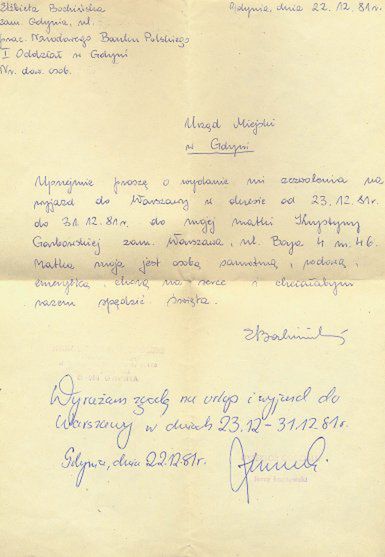 Elżbieta Bochińska
zam. Gdynia, ul.
prac. Narodowego Banku Polskiego
I Oddział w Gdyni
Nr. dow. osob.
Gdynia, dnia 22. 12. 81r.
Urząd Miejski
w Gdyni
Uprzejmie proszę o wydanie mi zezwolenia na
wyjazd do Warszawy w okresie od 23.12.81r
do 31.12.81r. do mojej matki Krystyny
Garbowskiej zam. Warszawa, ul. Boya 4 m. 46.
Matka moja jest osobą samotną, wdową i
emerytką, chorą na serce i chciałabym
razem spędzić święta.
Wyrażam zgodę na urlop i wyjazd do
Warszawy w dniach 23.12-31.12.81r.
Gdynia, dnia 22.12.81r.
Jerzy